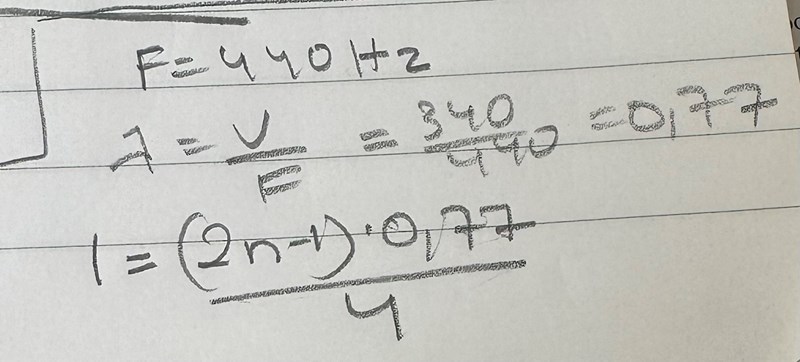 F = 440 Hz
λ = V/F = 340/440 = 0,77
l = (2n-1)·0,77/4